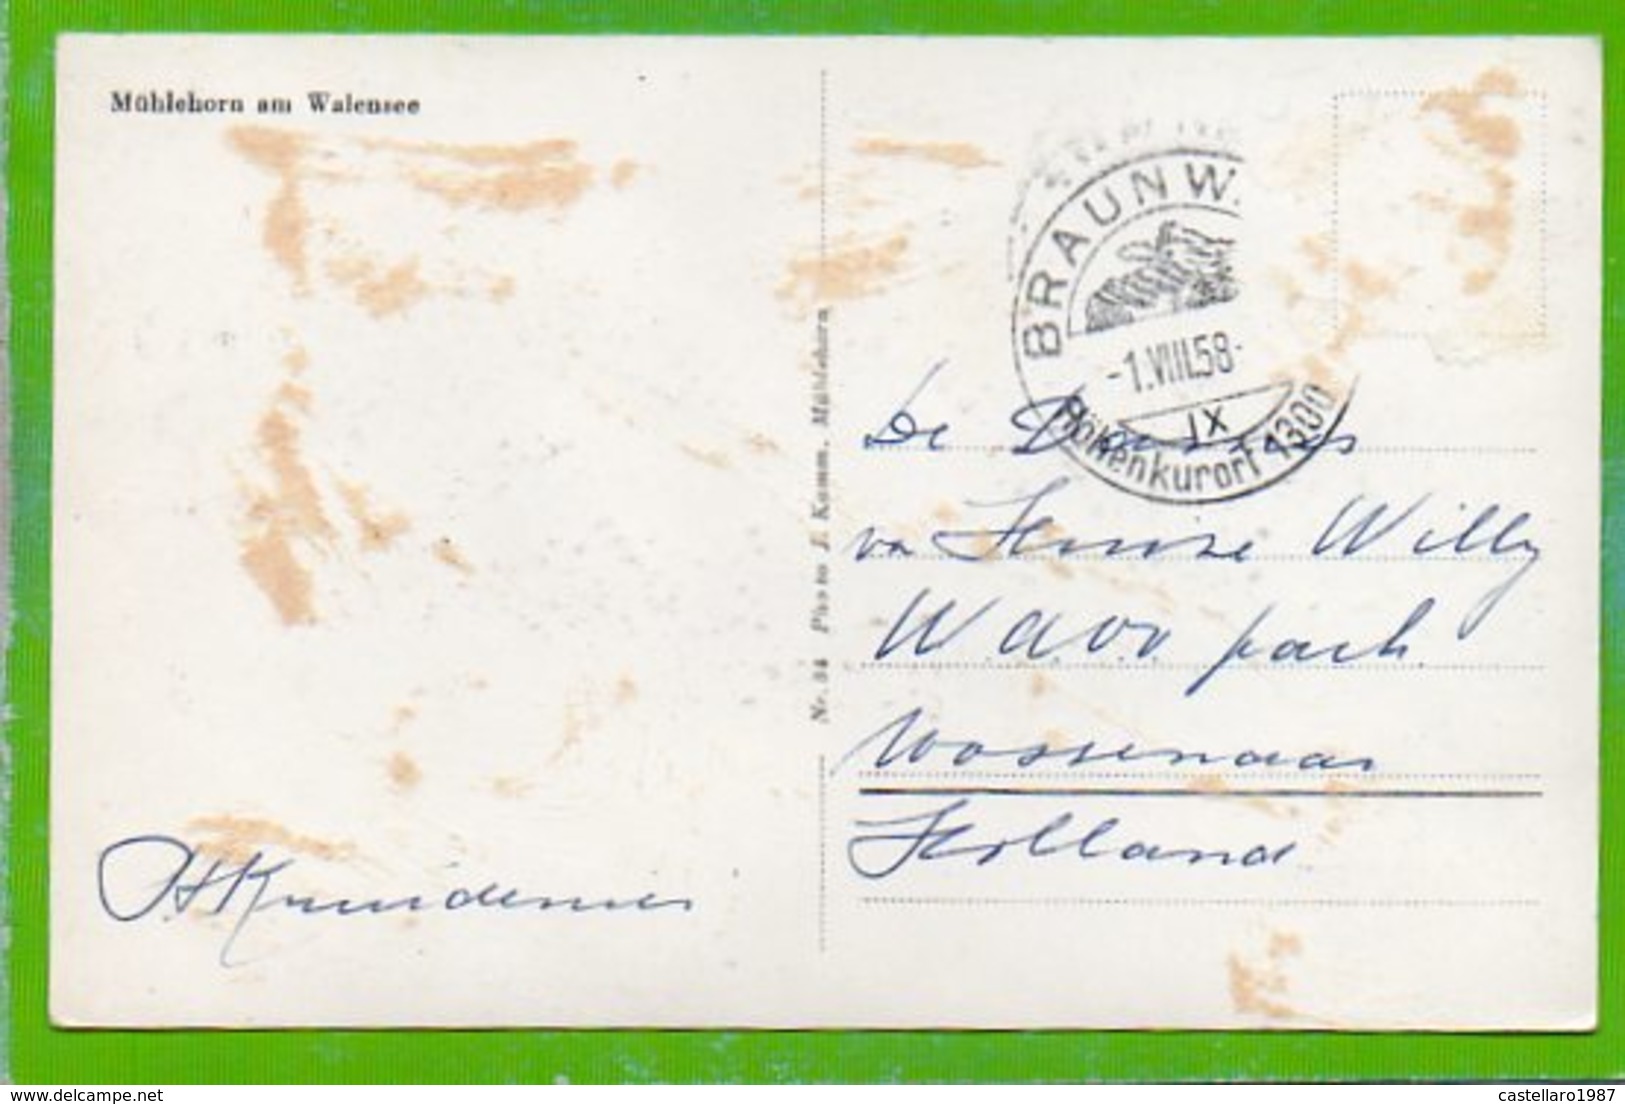 Mühlehorn am Walensee
BRAUNW.
-1.VIII.58-
IX
Höhenkurort 1300
Nr. 34 Photo J. Kamm, Mühlehorn
De
van Huize Willy
W.d.v.v park
Wassenaar
Holland
castellaro1987